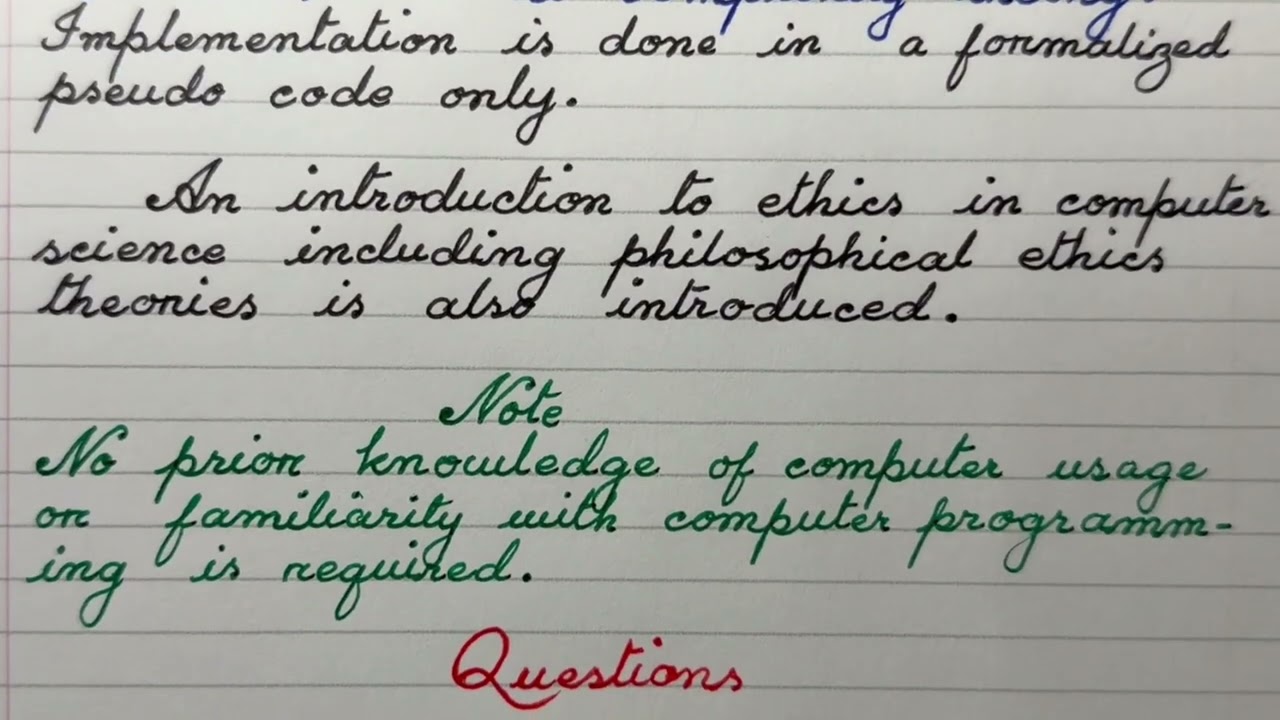 Implementation is done in a formalized
pseudo code only.
An introduction to ethics in computer
science including philosophical ethics
theories is also introduced.
Note
No prior knowledge of computer usage
or familiarity with computer programm-
ing is required.
Questions